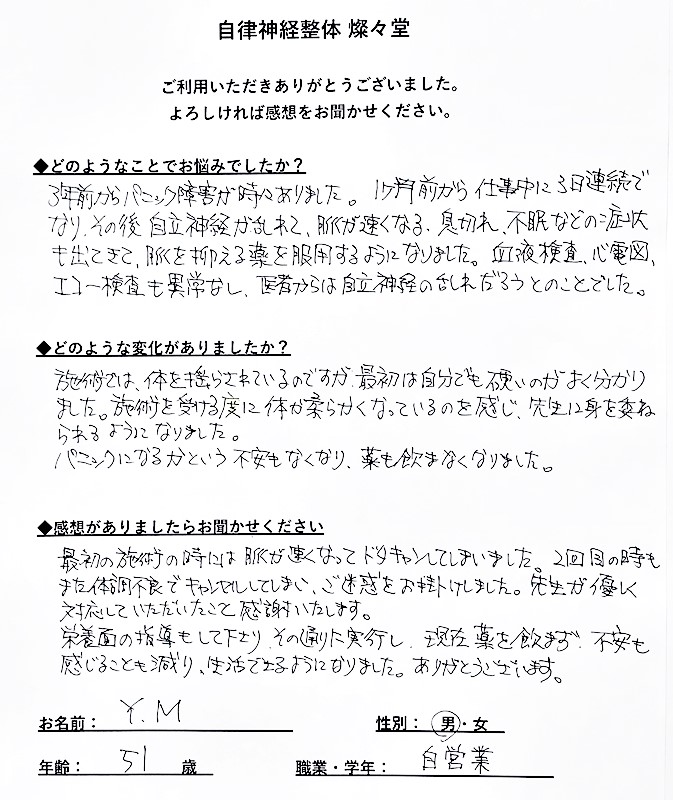 自律神経整体 燦々堂
ご利用いただきありがとうございました。
よろしければ感想をお聞かせください。
◆どのようなことでお悩みでしたか？
3年前からパニック障害が時々ありました。1ヶ月前から仕事中に3日連続で
なり、その後自立神経が乱れて、脈が速くなる、息切れ、不眠などの症状
も出てきて、脈を抑える薬を服用するようになりました。血液検査、心電図、
エコー検査も異常なし、医者からは自立神経の乱れだろうとのことでした。
◆どのような変化がありましたか？
施術では、体を揺らされているのですが、最初は自分でも硬いのがよく分かり
ました。施術を受ける度に体が柔らかくなっているのを感じ、先生に身を委ね
られるようになりました。
パニックになるかという不安もなくなり、薬も飲まなくなりました。
◆感想がありましたらお聞かせください
最初の施術の時には脈が速くなってドタキャンしてしまいました。2回目の時も
また体調不良でキャンセルしてしまい、ご迷惑をお掛けしました。先生が優しく
対応していただいたこと感謝いたします。
栄養面の指導もして下さり、その通りに実行し、現在薬を飲まず、不安も
感じることも減り、生活できるようになりました。ありがとうございます。
お名前： Y.M 性別： 男・女
年齢： 51 歳 職業・学年： 自営業